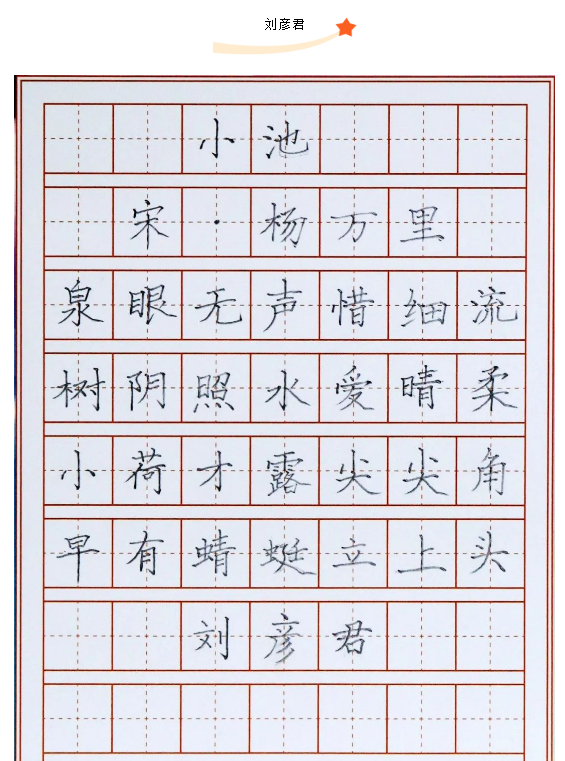 刘彦君
小池
宋·杨万里
泉眼无声惜细流
树阴照水爱晴柔
小荷才露尖尖角
早有蜻蜓立上头
刘彦君